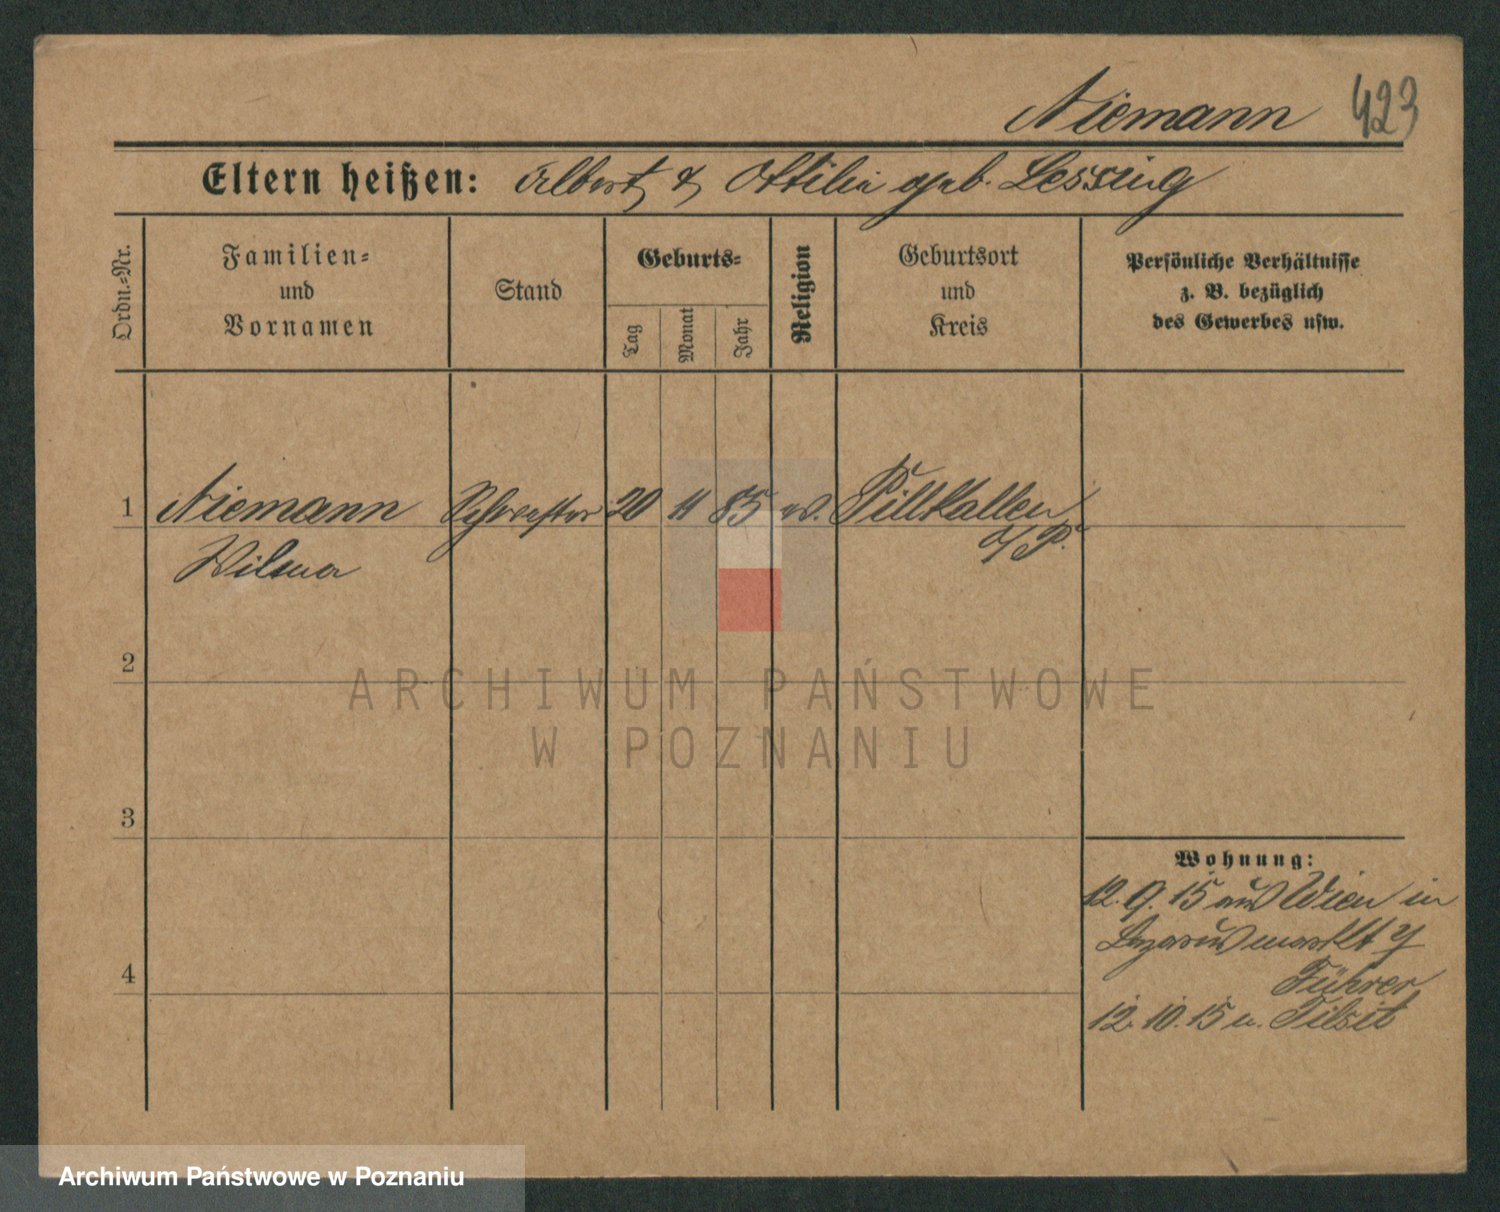 Niemann 423
Eltern heißen: Albert & Ottilie geb. Lessing
Ordn.-Nr.
Familien-
und
Vornamen
Stand
Geburts-
Tag
Monat
Jahr
Religion
Geburtsort
und
Kreis
Persönliche Verhältnisse
z. B. bezüglich
des Gewerbes usw.
1 Niemann Schwester 20 11 85 ev. Pillkallen
Wilma o/P.
2
ARCHIWUM PAŃSTWOWE
W POZNANIU
3
Wohnung:
12. 9. 15 aus Wien in
Lazarusmarkt
4
Führer
12. 10. 15 n. Tilsit
Archiwum Państwowe w Poznaniu